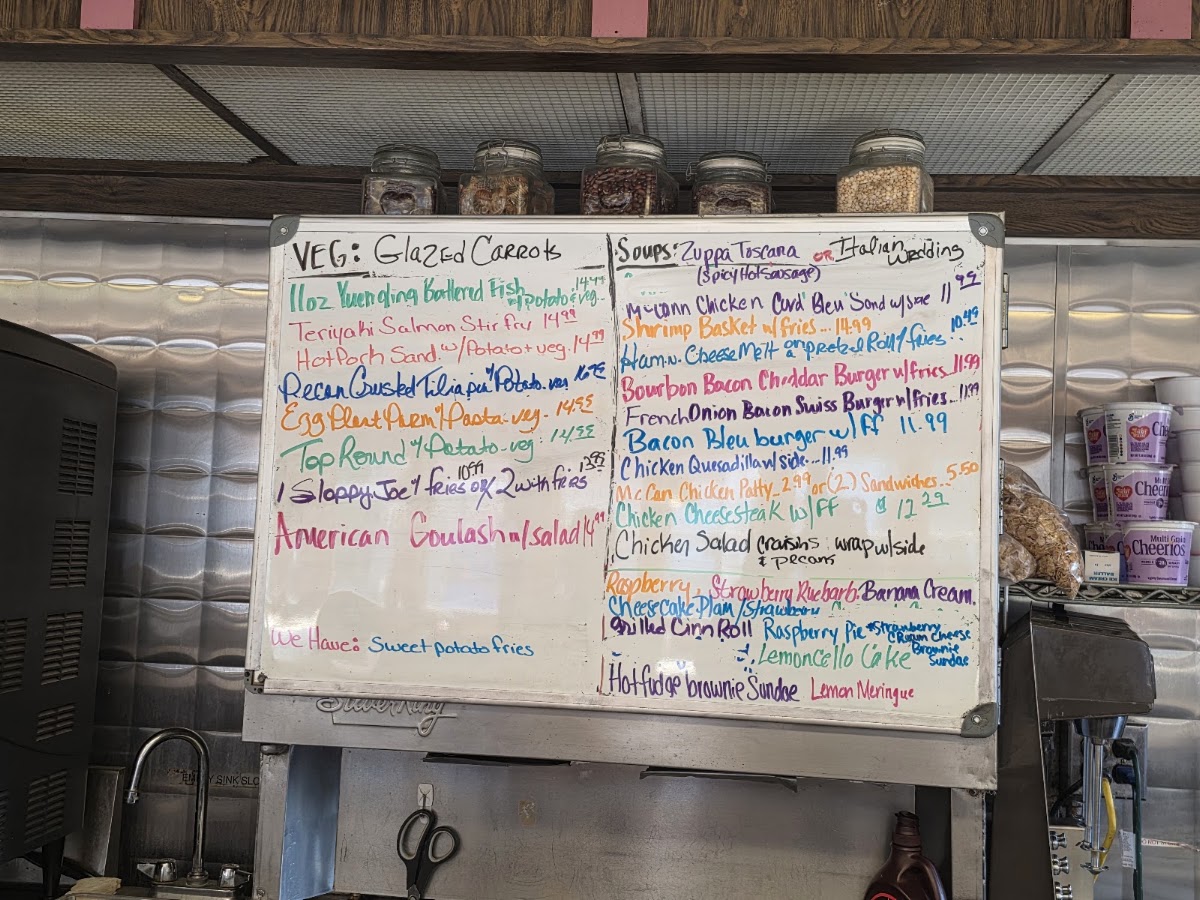 VEG: Glazed Carrots
11oz Yuengling Battered Fish w/potato & veg 14.99
Teriyaki Salmon Stir fry 14.99
Hot Pork Sand. w/Potato + veg. 14.99
Pecan Crusted Tilapia w/ Potato-veg
Egg Plant Parm w/ Pasta-veg - 14.95
Top Round w/ Potato-veg.
1 Sloppy Joe w/ fries 10.99 or/ 2 with fries 13.99
American Goulash w/salad 14.99
We Have: Sweet potato fries
Soups: Zuppa Toscana OR Italian Wedding
(Spicy Hot Sausage)
McCann Chicken Cord' Bleu' Sand w/side 11.99
Shrimp Basket w/ fries... 14.99
Ham-n-Cheese Melt on a pretzel Roll w/ fries 10.49
Bourbon Bacon Cheddar Burger w/fries 11.99
French Onion Bacon Swiss Burger w/fries.. 11.99
Bacon Bleu burger w/ ff 11.99
Chicken Quesadilla w/ side... 11.99
McCan Chicken Patty.. 2.99 or (2) Sandwiches.. 5.50
Chicken Cheesesteak w/ FF $ 12.29
Chicken Salad craisins & pecans wrap w/side
Raspberry, Strawberry Ruebarb. Banana Cream.
Cheesecake Plain/strawberry
Grilled Cinn Roll Raspberry Pie *Strawberry Cream Cheese Brownie Sundae
Lemoncello Cake
Hot fudge brownie Sundae Lemon Meringue
SilverKing
Multi Grain
Cheerios